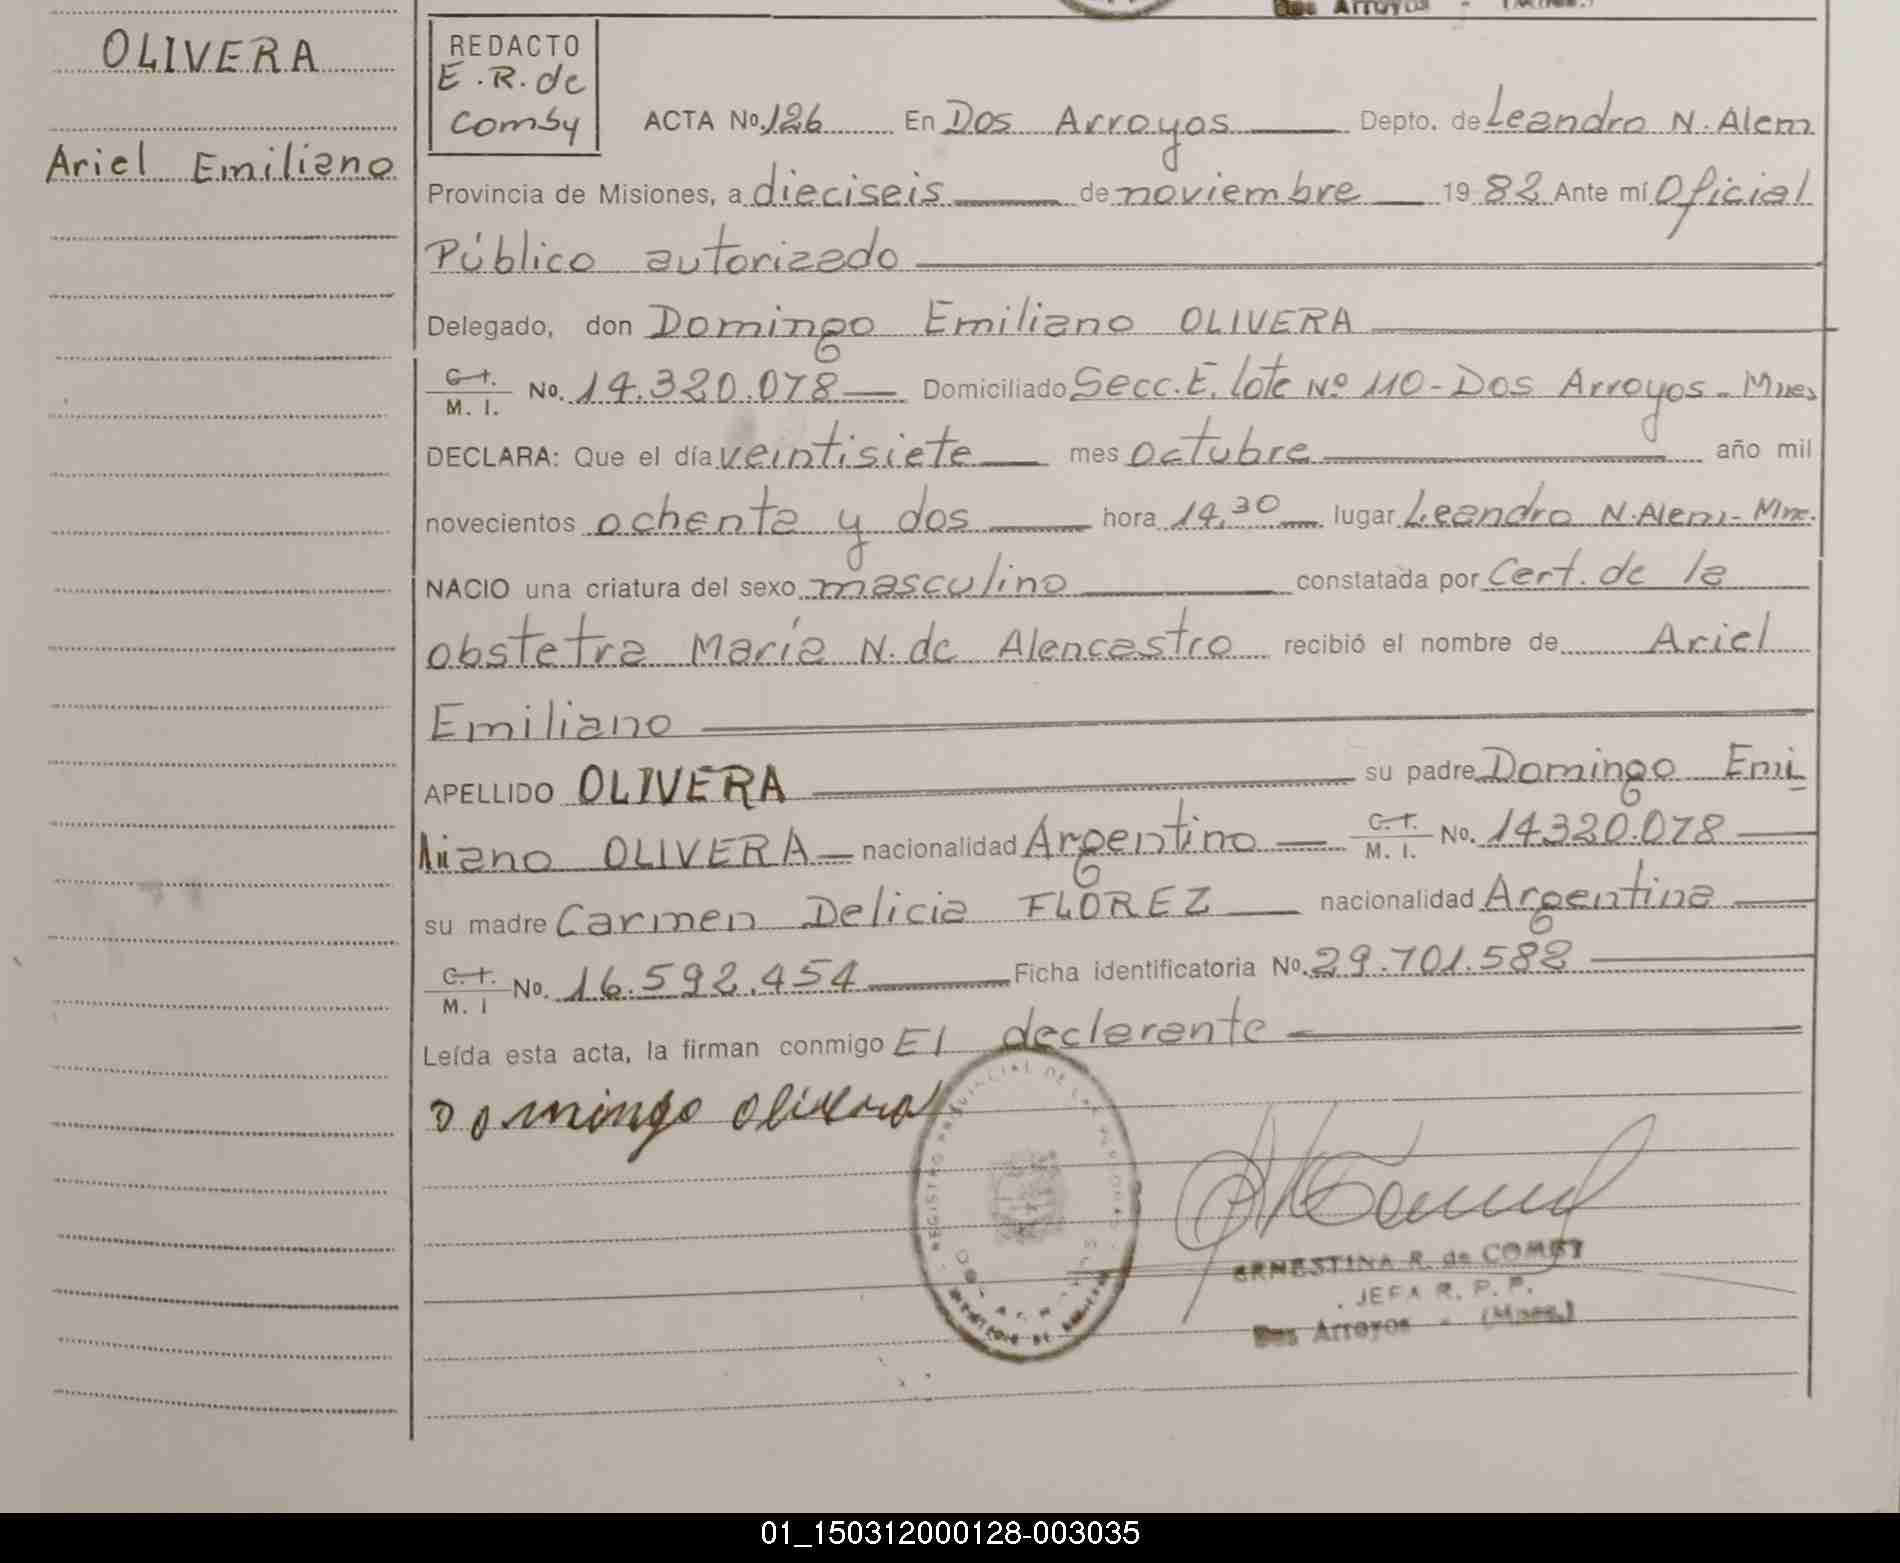 Dos Arroyos - (Mnes.)
OLIVERA
Ariel Emiliano
REDACTO
E.R. de
Comby
ACTA No. 126 En Dos Arroyos Depto. de Leandro N. Alem
Provincia de Misiones, a dieciseis de noviembre 1982 Ante mí Oficial
Público autorizado
Delegado, don Domingo Emiliano OLIVERA
C.I.
M. I. No. 14.320.078 Domiciliado Secc. E. lote Nº 110 - Dos Arroyos - Mnes
DECLARA: Que el día veintisiete mes octubre año mil
novecientos ochenta y dos hora 14,30 lugar Leandro N. Alem - Mne.
NACIO una criatura del sexo masculino constatada por Cert. de la
obstetra María N. de Alencastro recibió el nombre de Ariel
Emiliano
APELLIDO OLIVERA su padre Domingo Emi
liano OLIVERA nacionalidad Argentino C.I.
M. I. No. 14320.078
su madre Carmen Delicia FLOREZ nacionalidad Argentina
C.I.
M. I No. 16.592.454 Ficha identificatoria No. 29.701.582
Leída esta acta, la firman conmigo El declarante
Domingo Olivera
REGISTRO PROVINCIAL DE LAS PERSONAS
ERNESTINA R. de COMBY
JEFA R. P. P.
Dos Arroyos - (Mnes.)
01_150312000128-003035